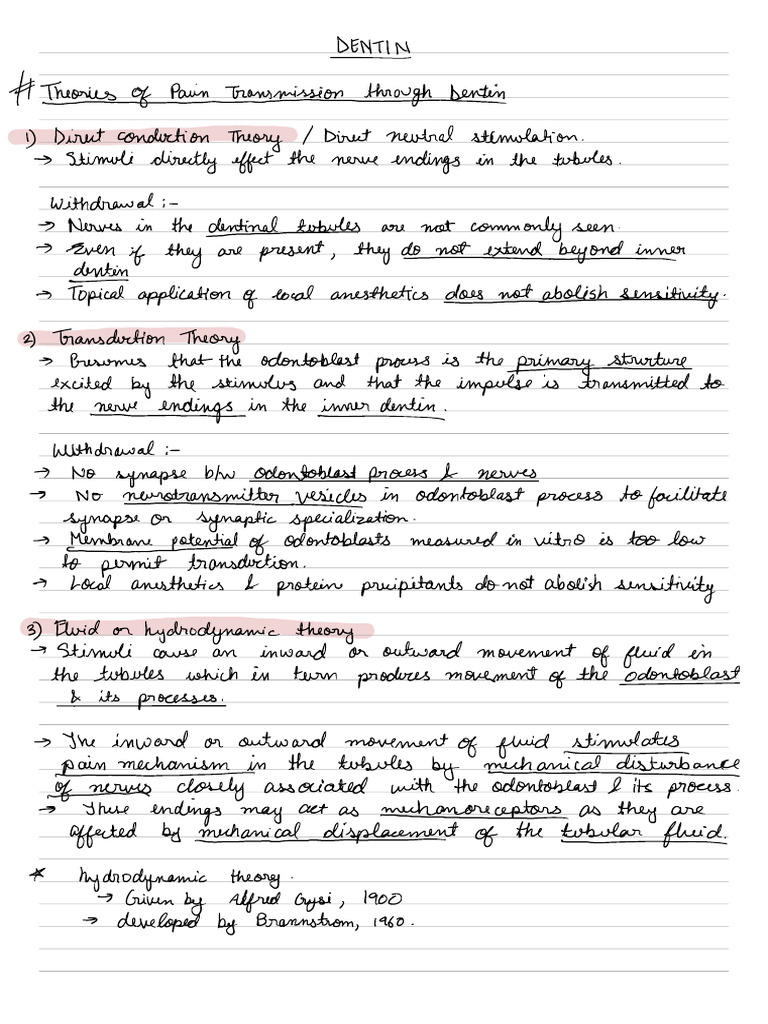 DENTIN
# Theories of Pain Transmission through Dentin
1) Direct conduction Theory / Direct neutral stimulation.
→ Stimuli directly effect the nerve endings in the tubules.
Withdrawal :-
→ Nerves in the dentinal tubules are not commonly seen.
→ Even if they are present, they do not extend beyond inner
dentin
→ Topical application of local anesthetics does not abolish sensitivity.
2) Transduction Theory
→ Presumes that the odontoblast process is the primary structure
excited by the stimulus and that the impulse is transmitted to
the nerve endings in the inner dentin.
Withdrawal :-
→ No synapse b/w odontoblast process & nerves
→ No neurotransmitter vesicles in odontoblast process to facilitate
synapse or synaptic specialization.
→ Membrane potential of odontoblasts measured in vitro is too low
to permit transduction.
→ Local anesthetics & protein precipitants do not abolish sensitivity
3) Fluid or hydrodynamic theory
→ Stimuli cause an inward or outward movement of fluid in
the tubules which in turn produces movement of the odontoblast
& its processes.
→ The inward or outward movement of fluid stimulates
pain mechanism in the tubules by mechanical disturbance
of nerves closely associated with the odontoblast & its process.
→ These endings may act as mechanoreceptors as they are
affected by mechanical displacement of the tubular fluid.
* hydrodynamic theory.
→ Given by Alfred Gysi, 1900
→ developed by Brannstrom, 1960.